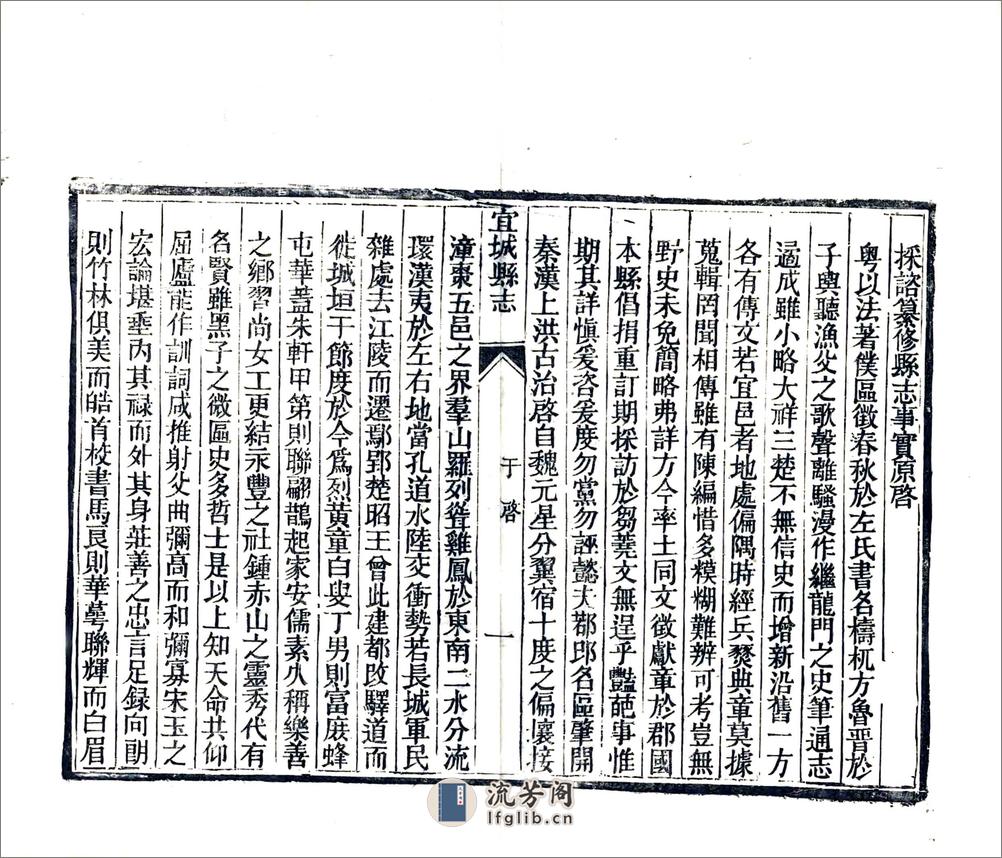 採諮纂修縣志事實原啓
粤以法著僕區徵春秋於左氏書名檮杌方魯晉於
子輿聽漁父之歌聲離騷漫作繼龍門之史筆通志
遹成雖小略大祥三楚不無信史而增新沿舊一方
各有傳文若宜邑者地處偏隅時經兵燹典章莫據
蒐輯罔聞相傳雖有陳編惜多糢糊難辨可考豈無
野史未免簡略弗詳方今率土同文徵獻章於郡國
本縣倡捐重訂期採訪於芻蕘文無逞乎豔葩事惟
期其詳慎爰咨爰度勿黨勿誣懿夫鄀鄢名區肇開
秦漢上洪古治啓自魏元星分翼宿十度之偏壤接
宜城縣志
于啓
一
漳棗五邑之界羣山羅列聳雞鳳於東南二水分流
環漢夷於左右地當孔道水陸交衝勢若長城軍民
雜處去江陵而遷鄢郢楚昭王曾此建都改驛道而
徙城垣于節度於今爲烈黄童白叟丁男則富庶蜂
屯華蓋朱軒甲第則聯翩鵲起家安儒素久稱樂善
之鄉習尚女工更結禾豐之社鍾赤山之靈秀代有
名賢雖黑子之微區史多哲士是以上知天命共仰
屈廬能作訓詞咸推射父曲彌高而和彌寡宋玉之
宏論堪垂丙其禄而外其身莊善之忠言足録向朗
則竹林俱美而皓首校書馬良則華萼聯輝而白眉
流芳阁
lfglib.cn